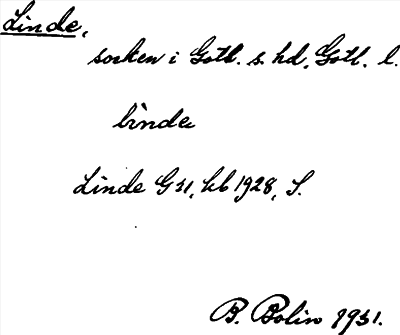 Linde,
socken i Gotl. s. hd, Gotl. l.
lìnde
Linde G 31, kb 1928, S.
B. Bolin 1931.